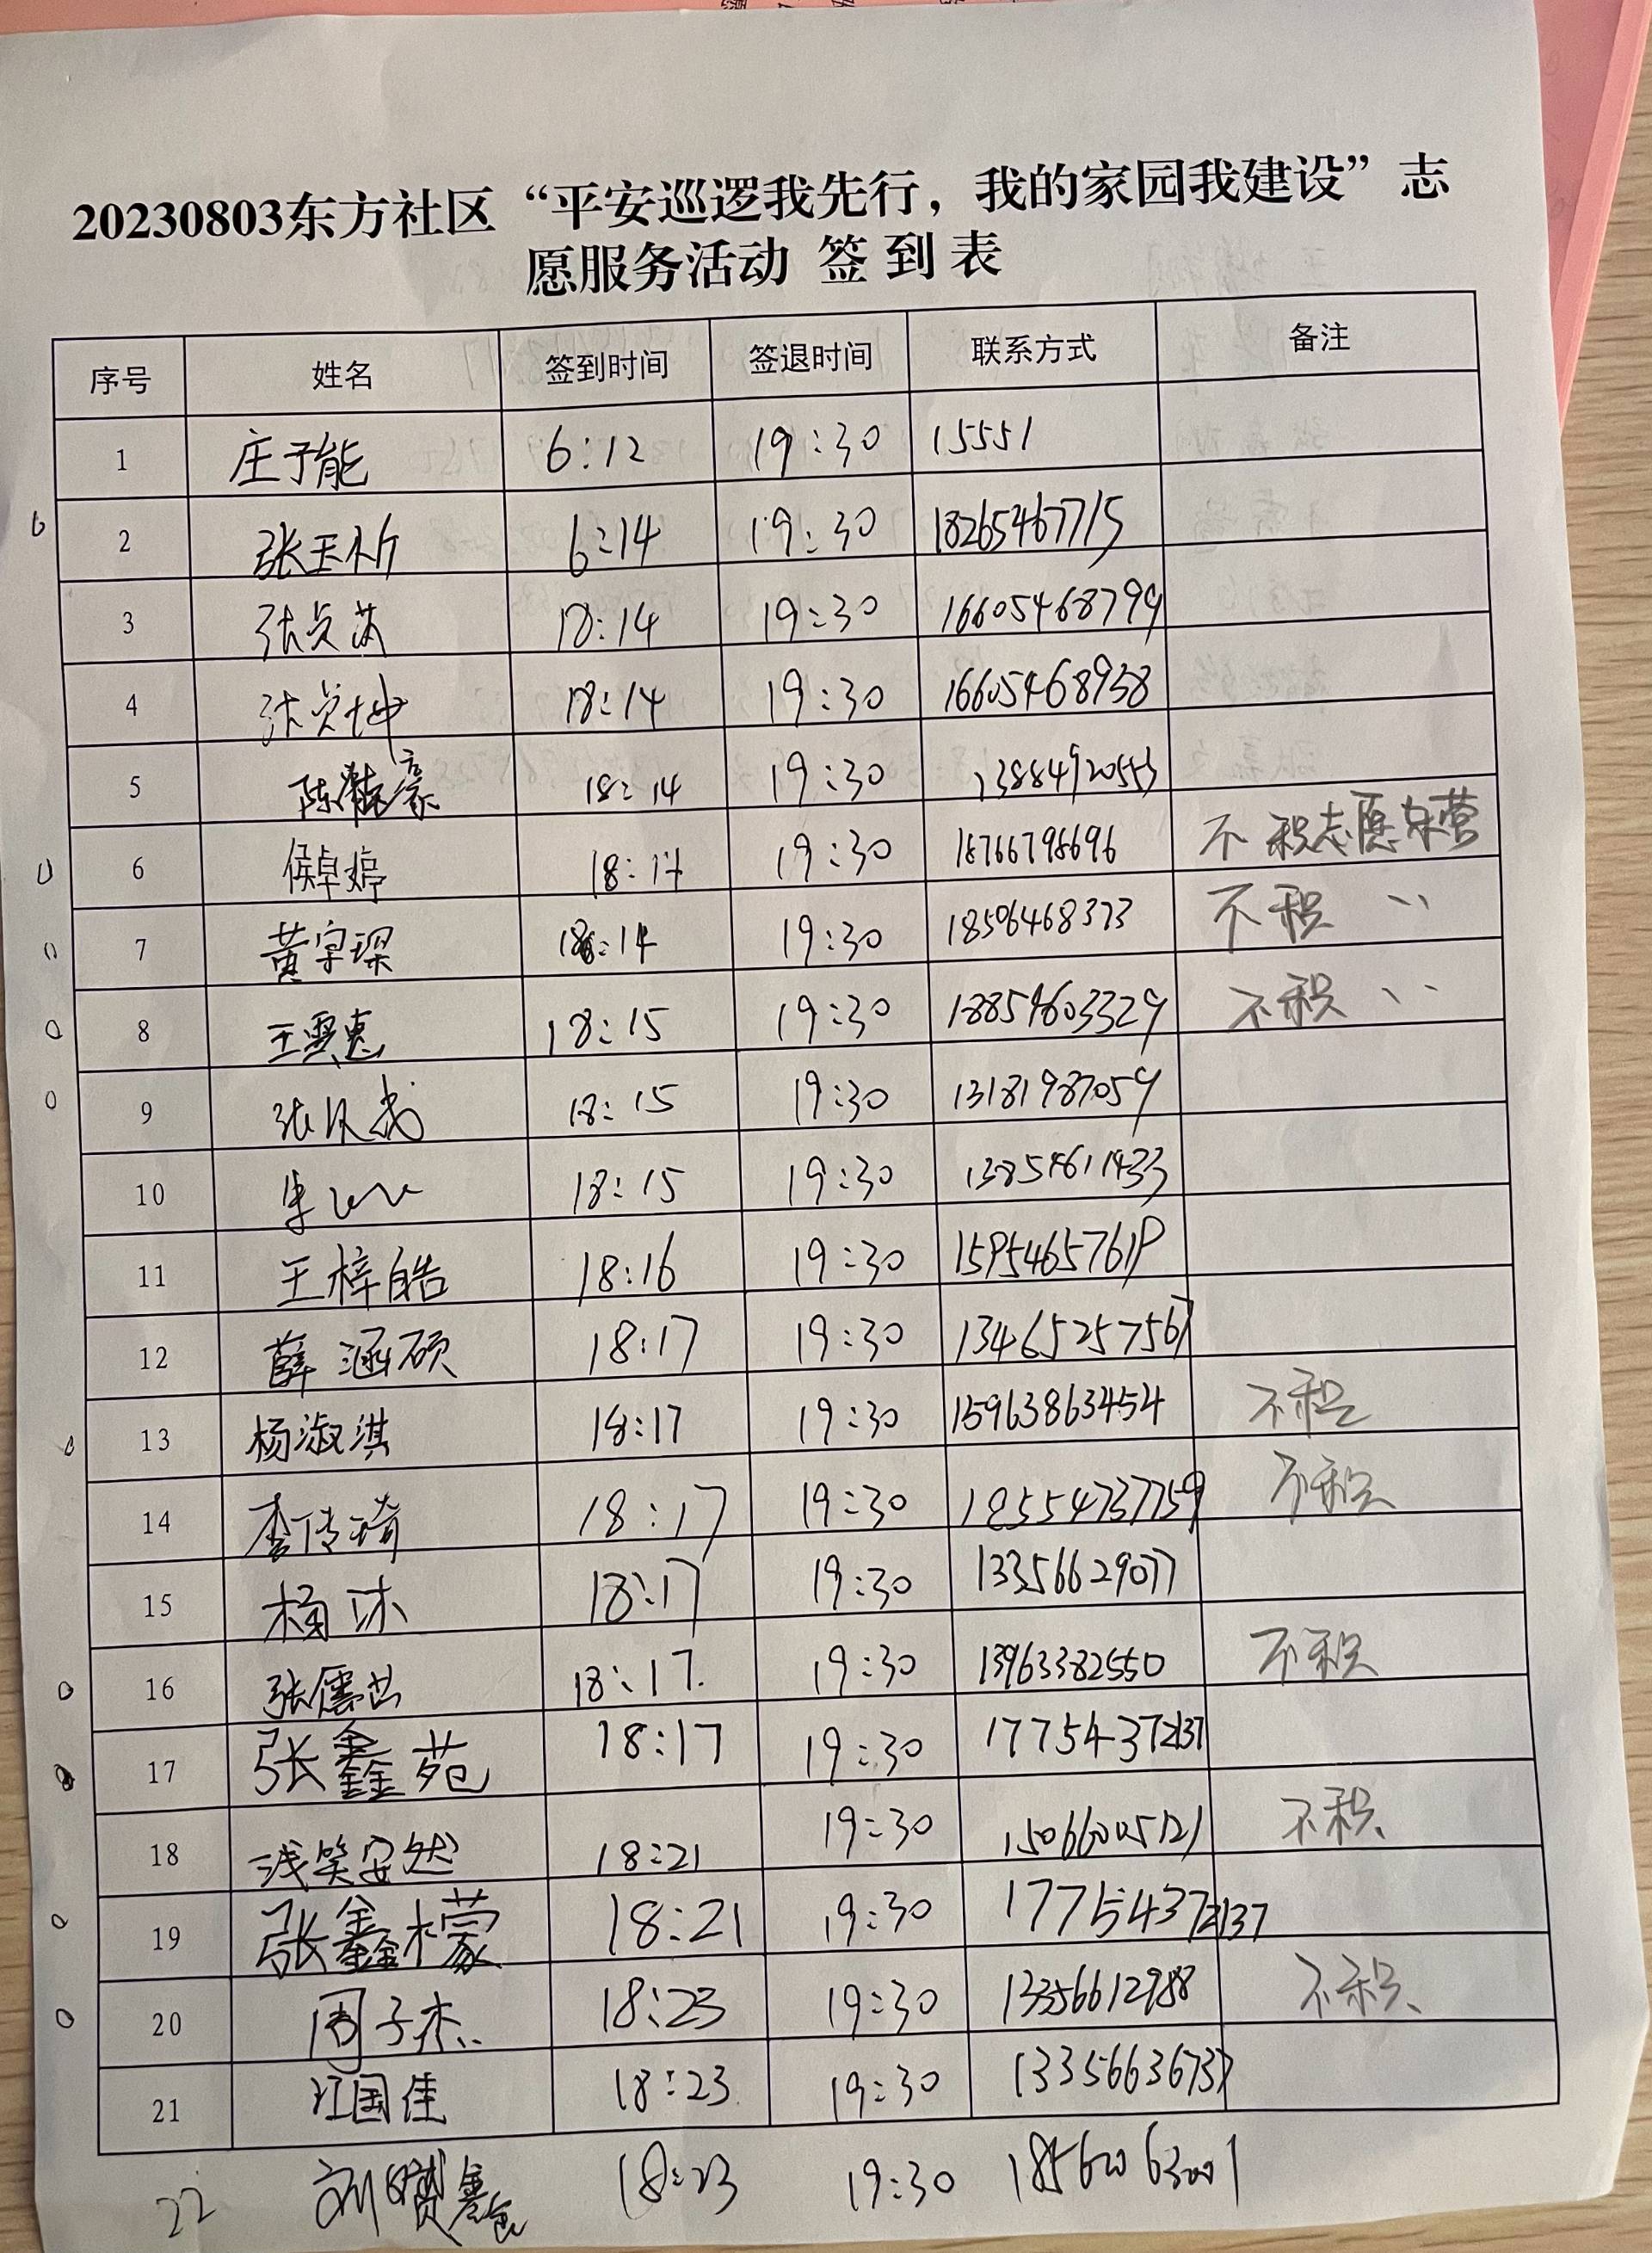 20230803东方社区“平安巡逻我先行，我的家园我建设”志
愿服务活动 签 到 表
序号 姓名 签到时间 签退时间 联系方式 备注
1 庄子能 6:12 19:30 15551
2 张玉析 6:14 19:30 18265467715
3 张贞 18:14 19:30 16605468799
4 张贞坤 18:14 19:30 16605468938
5 陈 豪 18:14 19:30 13884920553
6 侯卓婷 18:14 19:30 18766798696 不积志愿东营
7 黄宇琛 18:14 19:30 18506468373 不积 、、
8 王雲惠 18:15 19:30 18854603329 不积 、、
9 张 18:15 19:30 13181987059
10 18:15 19:30 13854611433
11 王梓皓 18:16 19:30 15954657619
12 薛涵硕 18:17 19:30 13465257567
13 杨淑淇 18:17 19:30 15963863454 不积
14 李传琦 18:17 19:30 18554737759 不积
15 杨沐 18:17 19:30 13356629077
16 张儒 18:17. 19:30 13963382550 不积
17 张鑫苑 18:17 19:30 17754372137
18 浅笑安然 18:21 19:30 15066005121 不积
19 张鑫檬 18:21 19:30 17754372137
20 周子杰 18:23 19:30 13356612988 不积
21 江国佳 18:23 19:30 13356636737
22 刘 18:23 19:30